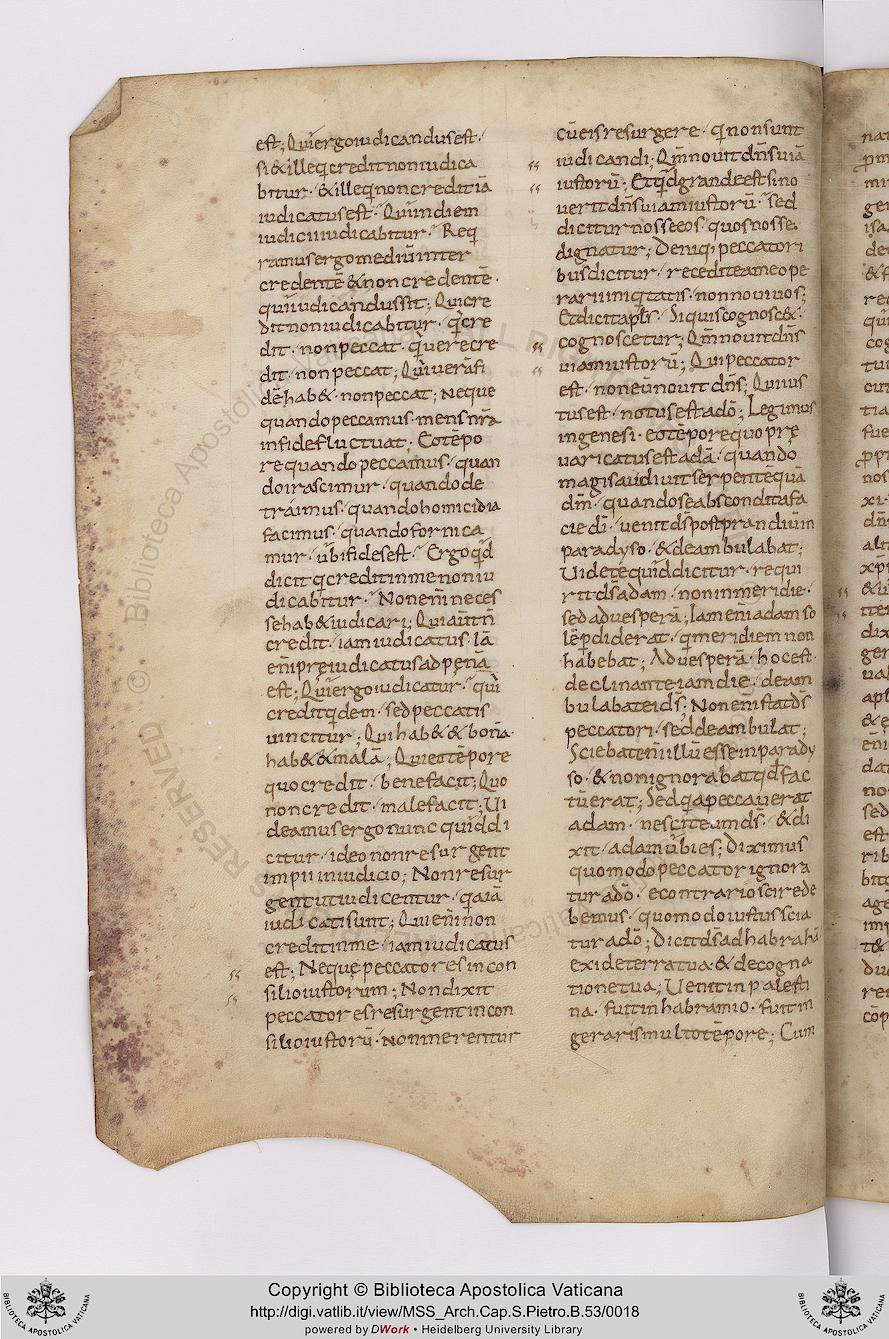 est; Quiergoiudicandusest.
si&illeqcreditnoniudica
bitur. &illeqnoncreditiā
iudicatusest. Quiindiem
iudiciiiudicabitur. Req
ramusergomediūinter
credentē&noncredentē.
quiiudicandussit; Quicre
ditnoniudicabitur. qcre
dit. nonpeccat. quiuerecre
dit. nonpeccat; Quiuerāfi
dēhab&. nonpeccat; Neque
quandopeccamus. mensnr̄a
infidefluctuat; Eotēpo
requandopeccamus. quan
doirascimur. quandode
tráimus. quandohomicidia
facimus. quandofornica
mur. ubifidesest. Ergoqd
dicitqcreditinmenoniu
dicabitur. Nonenīneces
sehab&iudicari; Quiautn
credit. iamiudicatus. Iā
enīpreiudicatusadpenā
est; Quiergoiudicatur. qui
creditqdem. sedpeccatis
uincitur; Quihab&&bona.
hab&&malā; Quieotēpore
quocredit. benefacit; Quo
noncredit. malefacit; Ui
deamusergonuncquiddi
citur. ideononresurgent
impiiniudicio; Nonresur
gentutiudicentur. qaiā
iudicatisunt; Quienīnon
creditinme. iamiudicatus
est; Nequepeccatoresincon
silioiustorum; Nondixit
peccatoresresurgentincon
silioiustorū. Nonmerentur
cūeisresurgere. qnonsunt
iudicandi; Qm̄nouitdn̄suiā
iustorū; Etqdgrandeestsino
ueritdn̄suiamiustorū. sed
diciturnosseeos. quosnosse
dignatur; Deniq; peccatori
busdicitur. receditéameope
rariiiniqtatis. nonnouiuos;
Etdicitapls. Siquiscognosc&.
cognoscetur; Qm̄nouitdn̄s
uiamiustorū; Quipeccator
est. noneūnouitdn̄s; Quiius
tusest. notusestadō; Legimus
ingenesi. eotēporequopre
uaricatusestadā. quando
magisaudiuitserpentēquā
dm̄. quandoseabsconditafa
ciedī. uenitds̄postprandiūin
paradyso. &deambulabat;
Uidetequiddicitur. requi
ritds̄adam. noninmeridie.
sedaduesperā; Iamenīadamso
lēpdiderat. qmeridiemnon
habebat; Aduesperā. hocest
declinanteiamdie. deam
bulabateids̄; Nonenīstatds̄
peccatori. seddeambulat;
Sciebatenīillūesseinparady
so. &nonignorabatqdfac
tūerat; Sedqapeccauerat
adam. nesciteumds̄. &di
xit. adamubies; Diximus
quomodopeccatorignora
turadō. econtrarioscirede
bemus. quomodoiustusscia
turadō; Dicitds̄adhabrahā
exideterratua. &decogna
tionetua; Uenitinpalesti
na. fuitinhabramio. fuitin
gerarismultotēpore; Cum
Copyright © Biblioteca Apostolica Vaticana
http://digi.vatlib.it/view/MSS_Arch.Cap.S.Pietro.B.53/0018
powered by DWork • Heidelberg University Library